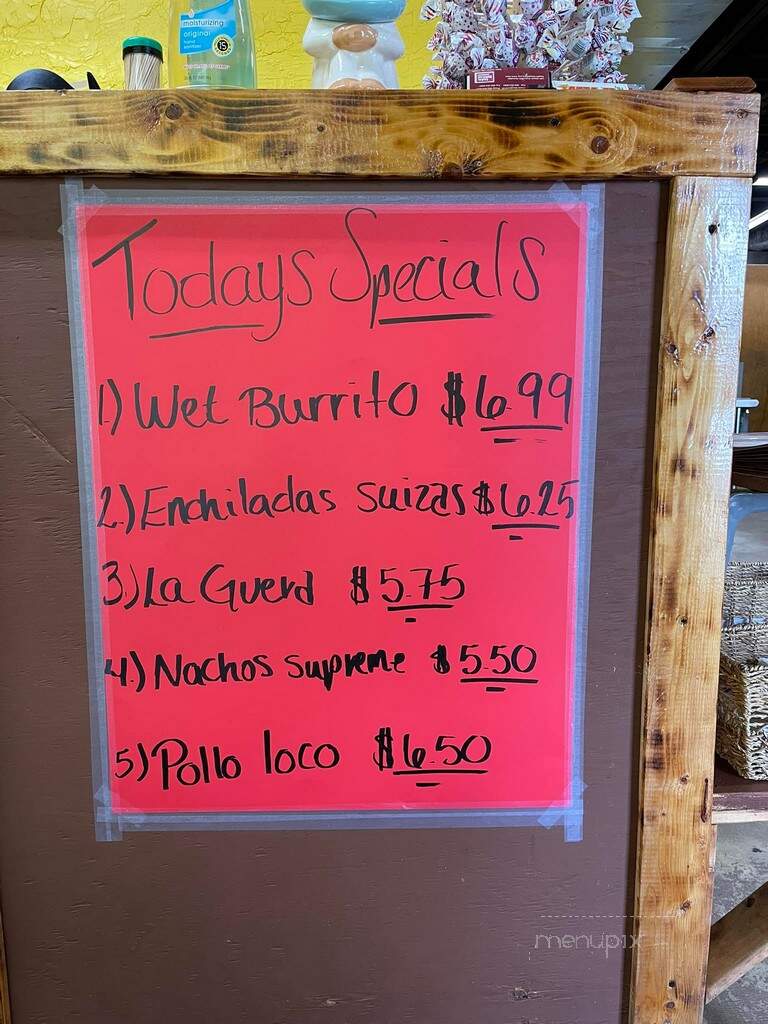 moisturizing
original
hand
sanitizer
15
Todays Specials
1.) Wet Burrito $6.99
2.) Enchiladas suizas $6.25
3.) La Guera $5.75
4.) Nachos supreme $5.50
5) Pollo loco $6.50
menupix